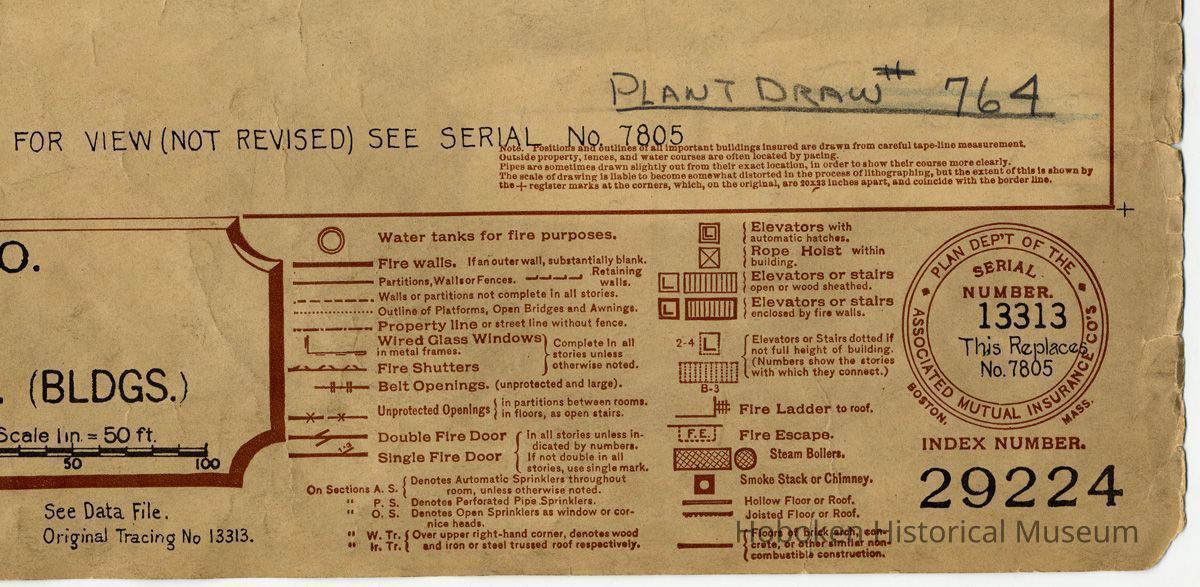 PLANT DRAW# 764
FOR VIEW (NOT REVISED) SEE SERIAL No. 7805
Note. Positions and outlines of all important buildings insured are drawn from careful tape-line measurement.
Outside property, fences, and water courses are often located by pacing.
Pipes are sometimes drawn slightly out from their exact location, in order to show their course more clearly.
The scale of drawing is liable to become somewhat distorted in the process of lithographing, but the extent of this is shown by
the + register marks at the corners, which, on the original, are 20x23 inches apart, and coincide with the border line.
O.
. (BLDGS.)
Scale 1 in. = 50 ft.
50 100
See Data File.
Original Tracing No 13313.
Water tanks for fire purposes.
Fire walls. If an outer wall, substantially blank.
Partitions, Walls or Fences. Retaining walls.
Walls or partitions not complete in all stories.
Outline of Platforms, Open Bridges and Awnings.
Property line or street line without fence.
Wired Glass Windows
in metal frames.
Fire Shutters
Complete in all
stories unless
otherwise noted.
Belt Openings. (unprotected and large).
Unprotected Openings
in partitions between rooms.
in floors, as open stairs.
1-2
Double Fire Door
Single Fire Door
In all stories unless in-
dicated by numbers.
If not double in all
stories, use single mark.
On Sections A. S. Denotes Automatic Sprinklers throughout
room, unless otherwise noted.
" P. S. Denotes Perforated Pipe Sprinklers.
" O. S. Denotes Open Sprinklers as window or cor-
nice heads.
" W. Tr. Over upper right-hand corner, denotes wood
" Ir. Tr. and iron or steel trussed roof respectively.
Elevators with
automatic hatches.
Rope Hoist within
building.
Elevators or stairs
open or wood sheathed.
Elevators or stairs
enclosed by fire walls.
2-4 L
B-3
Elevators or Stairs dotted if
not full height of building.
(Numbers show the stories
with which they connect.)
Fire Ladder to roof.
F.E. Fire Escape.
Steam Boilers.
Smoke Stack or Chimney.
Hollow Floor or Roof.
Joisted Floor or Roof.
Floors of brick arch, con-
crete, or other similar non-
combustible construction.
PLAN DEP'T OF THE
ASSOCIATED MUTUAL INSURANCE CO'S
SERIAL
NUMBER.
13313
This Replaces
No. 7805
BOSTON, MASS.
INDEX NUMBER.
29224
Hoboken Historical Museum